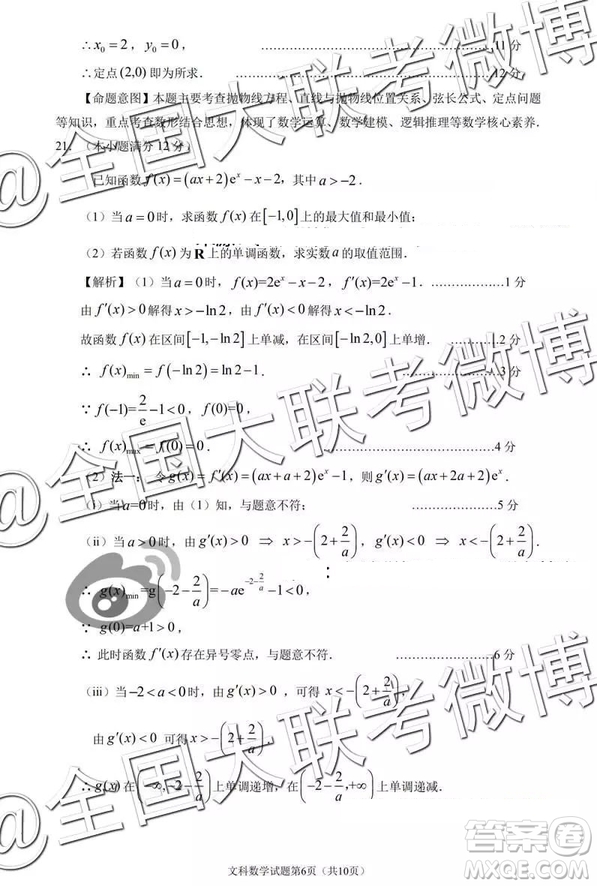 ∴x₀=2，y₀=0， ………………………11分
∴定点(2,0)即为所求． ………………………12分
【命题意图】本题主要考查抛物线方程、直线与抛物线位置关系、弦长公式、定点问题
等知识，重点考查数形结合思想，体现了数学运算、数学建模、逻辑推理等数学核心素养．
21．（本小题满分12分）
已知函数f(x)=(ax+2)eˣ-x-2，其中a>-2．
（1）当a=0时，求函数f(x)在[-1,0]上的最大值和最小值；
（2）若函数f(x)为R上的单调函数，求实数a的取值范围．
【解析】（1）当a=0时，f(x)=2eˣ-x-2，f′(x)=2eˣ-1．………………1分
由f′(x)>0解得x>-ln2，由f′(x)<0解得x<-ln2．
故函数f(x)在区间[-1,-ln2]上单减，在区间[-ln2,0]上单增．………1.2分
∴ f(x)min=f(-ln2)=ln2-1． ………………………3分
∵ f(-1)=2/e-1<0，f(0)=0，
∴ f(x)max=f(0)=0． ………………………4分
（2）法一：令g(x)=f′(x)=(ax+a+2)eˣ-1，则g′(x)=(ax+2a+2)eˣ．
(i) 当a=0时，由（1）知，与题意不符； ………………………5分
（ii）当a>0时，由g′(x)>0 ⇒ x>-(2+2/a)，g′(x)<0 ⇒ x<-(2+2/a)．
∴ g(x)min=g(-2-2/a)=-ae^(-2-2/a)-1<0，
∵ g(0)=a+1>0，
∴ 此时函数f′(x)存在异号零点，与题意不符． ………………………6分
（iii）当-2<a<0时，由g′(x)>0 ，可得 x<-(2+2/a)，
由g′(x)<0 可得x>-(2+2/a)，
∴g(x)在(-∞,-2-2/a)上单调递增，在(-2-2/a,+∞)上单调递减．
文科数学试题第6页（共10页）
@全国大联考微博
@全国大联考微博
@全国大联考微博
答案圈
MXQE.COM